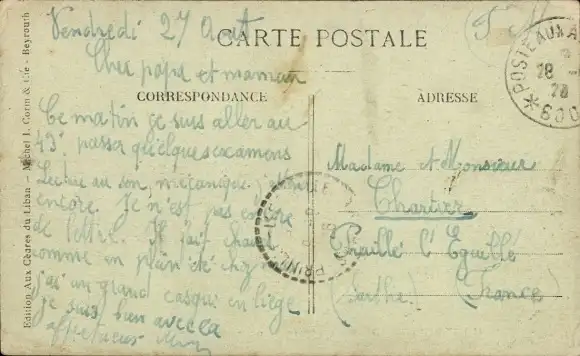 Vendredi 27 Out
CARTE POSTALE
Cher papa et maman
CORRESPONDANCE
Ce matin je suis aller au
43e passer quelques examens
encore. Je n'est pas encore
de lettre. Il fait chaud
comme en plein été
j'ai un grand casque en liège
je suis bien avec ça
ADRESSE
Madame et Monsieur
Chartier
l'Eguillé
(Sarthe) (France)
POSTE AUX A
28
600
Edition Aux Cèdres du Liban - Michel I. Corm & Cie - Beyrouth